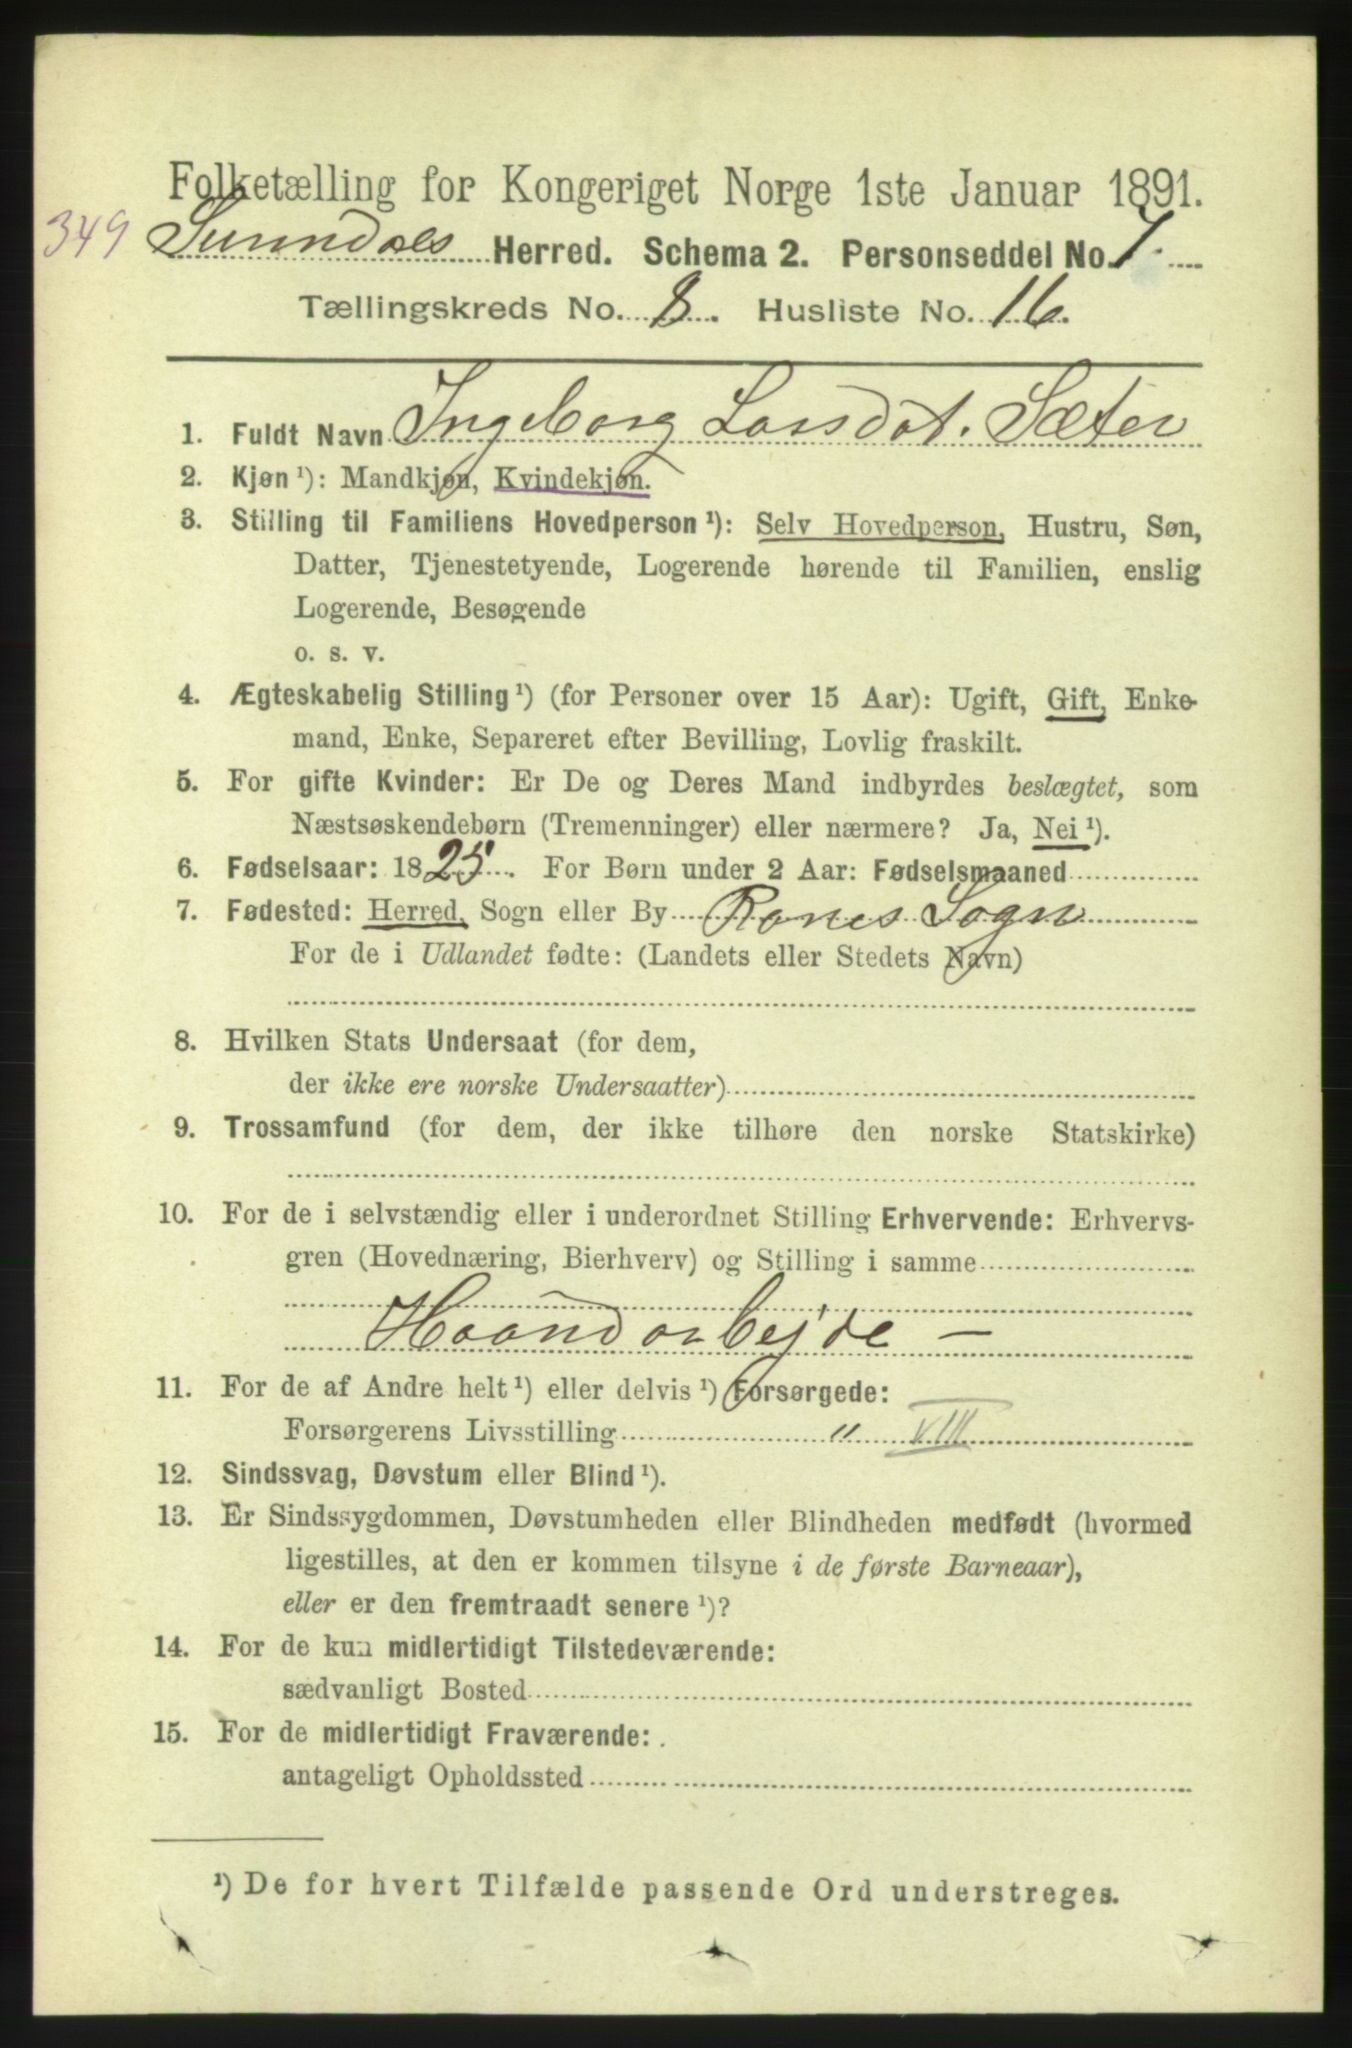 Folketælling for Kongeriget Norge 1ste Januar 1891.
349 Sunndals Herred. Schema 2. Personseddel No. 7.
Tællingskreds No. 8. Husliste No. 16.
1. Fuldt Navn Ingeborg Larsdat. Sæter
2. Kjøn ¹): Mandkjøn, Kvindekjøn.
3. Stilling til Familiens Hovedperson ¹): Selv Hovedperson, Hustru, Søn,
Datter, Tjenestetyende, Logerende hørende til Familien, enslig
Logerende, Besøgende
o. s. v.
4. Ægteskabelig Stilling ¹) (for Personer over 15 Aar): Ugift, Gift, Enke-
mand, Enke, Separeret efter Bevilling, Lovlig fraskilt.
5. For gifte Kvinder: Er De og Deres Mand indbyrdes beslægtet, som
Næstsøskendebørn (Tremenninger) eller nærmere? Ja, Nei ¹).
6. Fødselsaar: 1825. For Børn under 2 Aar: Fødselsmaaned
7. Fødested: Herred, Sogn eller By Ranes Sogn
For de i Udlandet fødte: (Landets eller Stedets Navn)
8. Hvilken Stats Undersaat (for dem,
der ikke ere norske Undersaatter)
9. Trossamfund (for dem, der ikke tilhøre den norske Statskirke)
10. For de i selvstændig eller i underordnet Stilling Erhvervende: Erhvervs-
gren (Hovednæring, Bierhverv) og Stilling i samme
Haandarbejde –
11. For de af Andre helt ¹) eller delvis ¹) Forsørgede:
Forsørgerens Livsstilling " VIII
12. Sindssvag, Døvstum eller Blind ¹).
13. Er Sindssygdommen, Døvstumheden eller Blindheden medfødt (hvormed
ligestilles, at den er kommen tilsyne i de første Barneaar),
eller er den fremtraadt senere ¹)?
14. For de kun midlertidigt Tilstedeværende:
sædvanligt Bosted
15. For de midlertidigt Fraværende:
antageligt Opholdssted
¹) De for hvert Tilfælde passende Ord understreges.